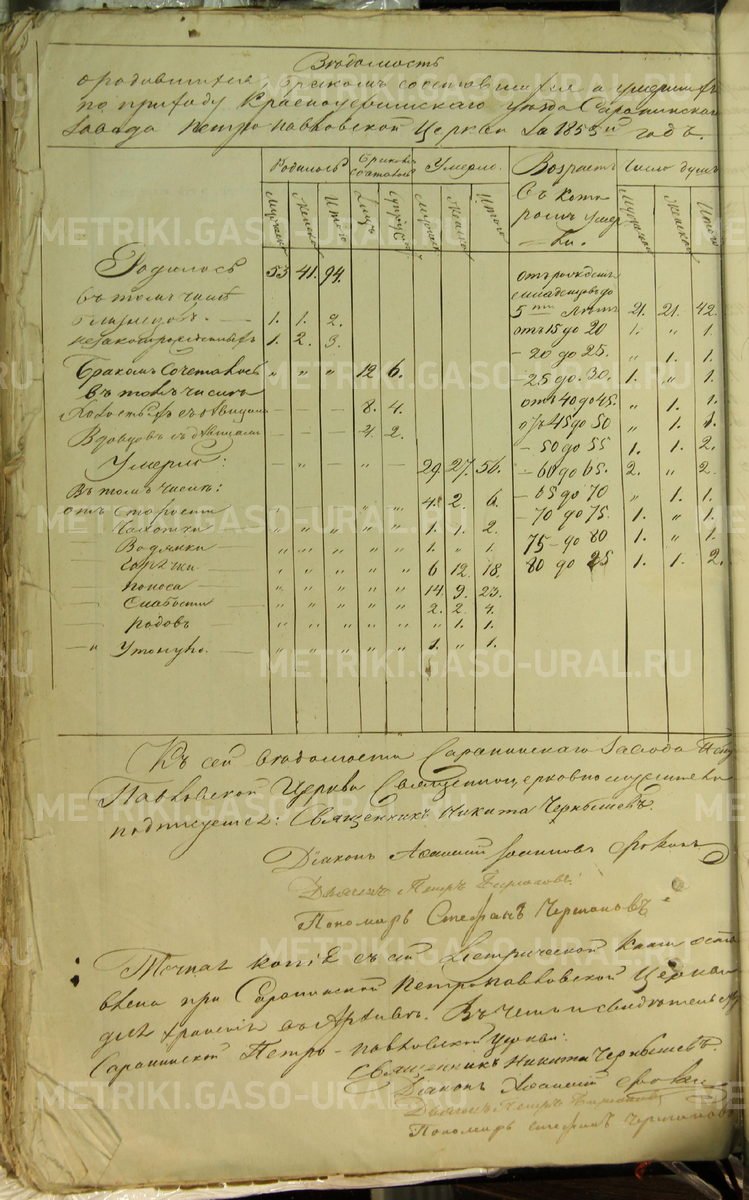 Вѣдомость
о родившихся, бракомъ сочетавшихся и умершихъ
по приходу Красноуфимскаго уѣзда Саранинскаго
завода Петро Павловской Церкви за 1853й годъ.
Родилось Браковъ сочеталось Умерло. Возрастъ Число душъ
Съ кото
ромъ умер
ли.
Мужеска Женска Итого Лицъ Супруж. Мужеска Женска Итого Мужеской Женской Итого
Родилось 53 41. 94.
въ томъ числѣ
близнецовъ. — 1. 1. 2.
незаконнорожденныхъ 1. 2. 3.
Бракомъ Сочеталось „ „ „ 12 6.
въ томъ числѣ
Холостыхъ съ дѣвицами — — 8. 4.
Вдовцовъ съ дѣвицами — — 4. 2.
Умерло: — „ — „ — 29 27. 56.
Въ томъ числѣ:
отъ Старости „ „ „ „ 4. 2. 6.
— Чахотки — „ „ „ „ „ 1. 1. 2.
— Водянки — „ „ „ „ „ 1. „ 1.
— Горячки — „ „ „ „ „ 6 12. 18.
— Поноса — „ „ „ „ „ 14. 9. 23.
— Слабости „ „ „ „ „ 2. 2. 4.
— родовъ — „ „ „ „ „ „ 1. 1.
— „ Утонуло. — „ „ „ „ „ 1. „ 1.
отъ рожденія
младенцевъ до
5ти лѣтъ 21. 21. 42.
отъ 15 до 20 1. „ 1.
— 20 до 25. „ 1. 1.
— 25 до 30. 1. „ 1.
отъ 40 до 45. „ 1. 1.
отъ 45 до 50 „ 1. 1.
— 50 до 55 1. 1. 2.
— 60 до 65. 2. „ 2.
— 65 до 70 „ 1. 1.
— 70 до 75. 1. „ 1.
75 — до 80 „ 1. 1.
80 до 85 1. 1. 2.
Къ сей вѣдомости Саранинскаго Завода Петро
Павловской Церкви Священноцерковнослужители
подписуемся: Священникъ Никита Чернышевъ.
Діаконъ Іоанновъ
Дьячекъ Петръ
Пономарь Стефанъ
Точная копія съ сей Метрической книги оста
влена при Саранинской Петропавловской Церкви
для храненія въ Архивѣ. Въ чемъ и свидѣтельству
Саранинской Петро-павловской Церкви:
Священникъ Никита Чернышевъ.
Діаконъ
Дьячекъ Петръ
Пономарь Стефанъ
METRIKI.GASO-URAL.RU